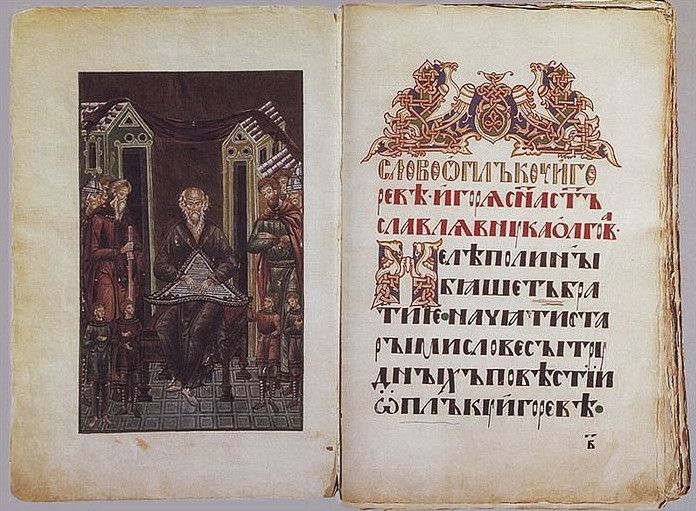 СЛОВО Ѡ ПЛЪКꙊ ИГО
РЕВѢ · ИГОРѦ С҃НА С҃ТЪ
СЛАВЛѦ ВНꙊКА ОЛГОВᲀ ·
НЕ ЛѢПО ЛИ НЫ
БѦШЕТЬ БРА
ТИѤ · НАЧѦТИ СТА
РЫМИ СЛОВЕСЫ ТРꙊ
ДНЫХЪ ПОВѢСТИИ
Ѡ ПЛЪКꙊ ИГОРЕВѢ ·